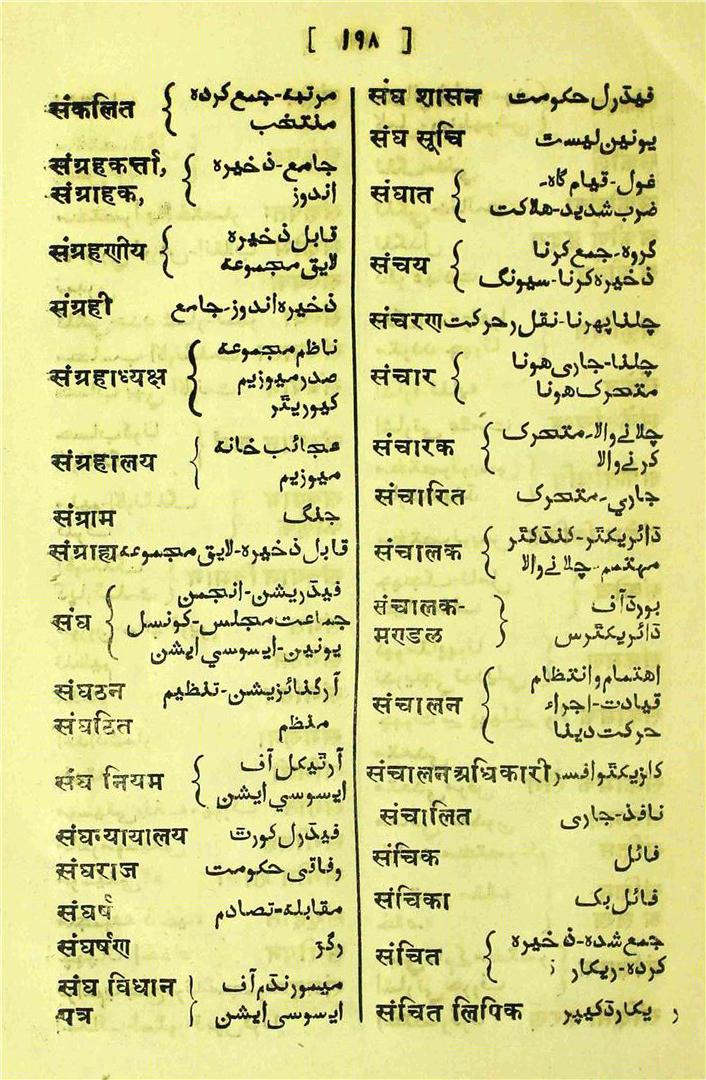 [ ١٩٨ ]
संकलित { مرتبہ-جمع کردہ
منتخب
संग्रहकर्त्ता, { جامع-ذخیرہ
संग्राहक, اندوز
संग्रहणीय { قابل ذخیرہ
لایق مجموعہ
संग्रही ذخیرہ اندوز-جامع
संग्रहाध्यक्ष { ناظم مجموعہ
صدر میوزیم
کیوریٹر
संग्रहालय { عجائب خانہ
میوزیم
संग्राम جنگ
संग्राह्य قابل ذخیرہ-لایق مجموعہ
संघ { فیڈریشن-انجمن
جماعت مجلس-کونسل
یونین-ایسوسی ایشن
संघठन آرگنائزیشن-تنظیم
संघटित منظم
संघ नियम { آرٹیکل آف
ایسوسی ایشن
संघन्यायालय فیڈرل کورٹ
संघराज وفاقی حکومت
संघर्ष مقابلہ-تصادم
संघर्षण رگڑ
संघ विधान { میمورنڈم آف
पत्र ایسوسی ایشن
संघ शासन فیڈرل حکومت
संघ सूचि یونین لیسٹ
संघात { غول-قیام گاہ-
ضرب شدید-ہلاکت
संचय { گروہ-جمع کرنا
ذخیرہ کرنا-سیونگ
संचरण چلنا پھرنا-نقل و حرکت
संचार { چلنا-جاری ہونا
متحرک ہونا
संचारक { چلانے والا-متحرک
کرنے والا
संचारित جاری-متحرک
संचालक { ڈائریکٹر-کنڈکٹر
مہتمم-چلانے والا
संचालक- { بورڈ آف
मण्डल ڈائریکٹرس
संचालन { اہتمام و انتظام
قیادت-اجراء
حرکت دینا
संचालन अधिकारी افسر
संचालित نافذ-جاری
संचिक فائل
संचिका فائل بک
संचित { جمع شدہ-ذخیرہ
کردہ-ریکارڈ
संचित लिपिक ریکارڈ کیپر